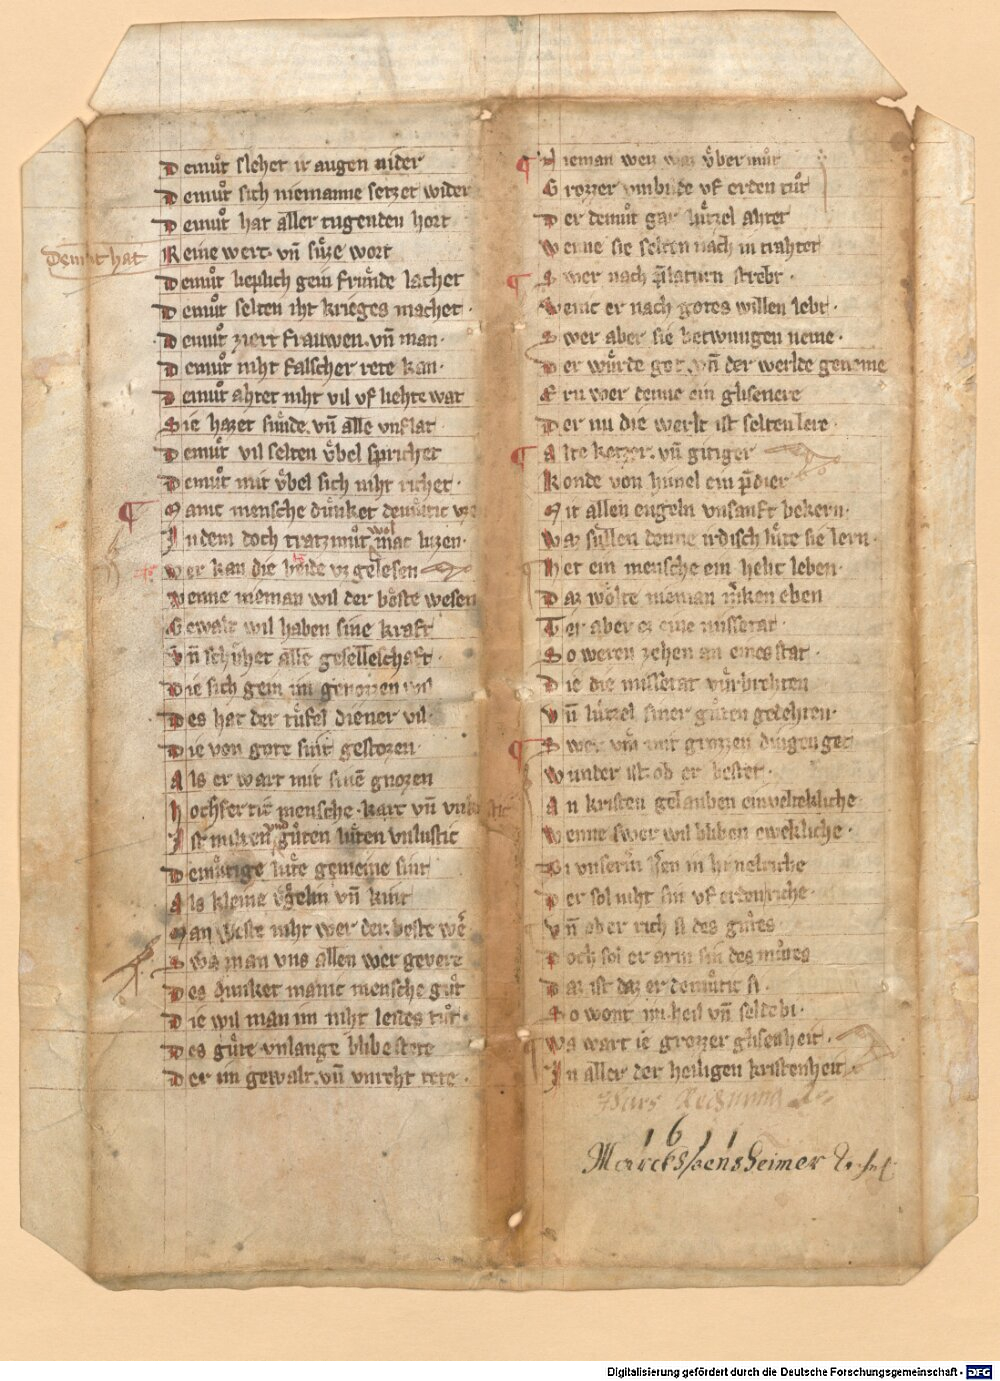 Demuͦt slehet ir augen nider
Demuͦt sich niemanne setzet wider
Demuͦt hat aller tugenden hort
Demut hat
Reine wert. vn̄ suͤze wort
Demuͦt lieplich gein frunde lachet
Demuͦt selten iht krieges machet ·
Demuͦt ziert frauwen. vn̄ man ·
Demuͦt niht falscher rete kan ·
Demuͦt ahtet niht vil vf liehte wat
Sie hazet sunde. vn̄ alle vnflat
Demuͦt vil selten vͤbel sprichet
Demuͦt mit vͤbel sich niht richet ·
¶ Manic mensche dunket demuͤtic
In dem doch tratzmuͦt wol mac luzen ·
Wer kan die beide vz gelesen
Wenne nieman wil der boͤste wesen
Gewalt wil haben sine kraft
Vn̄ schuhet alle geselleschaft ·
Die sich gein im genozzen wil
Des hat der tuͤfel diener vil ·
Die von gote sint gestozen ·
Als er wart mit sinē gnozen
Hochfertic mensche · kart vn̄
Ist milten guͤten luͤten vnlustic
Demuͤtige luͤte gemeine sint
Als kleine voͤgelin vn̄ kint
Man weste niht wer der beste wē
Swa man vns allen wer gevere
Des dunket manic mensche guͦt
Die wil man im niht leides tuͦt ·
Des guͤte vnlange blibe stete
Der im gewalt. vn̄ vnreht tete ·
¶ Nieman weiz waz vͤbermuͦt
Grozzer vnbilde vf erden tuͦt
Der demuͦt gar luͤtzel ahtet
Wenne sie selten nach in trahtet
¶ Swer nach p̄laturn strebt ·
Wenic er nach gotes willen lebt ·
Swer aber sie betwungen neme ·
Der wuͤrde got. vn̄ der werlde geneme
Ern wer denne ein glisenere
Der nu die werlt ist selten lere ·
¶ Alte ketzer. vn̄ gitiger
Konde von himel ein p̄dier
Mit allen engeln vnsanft bekern ·
Waz sullen denne irdisch luͤte sie lern ·
Het ein mensche ein helic leben ·
Daz woͤlte nieman m̄ken eben
Tet er aber eine missetat ·
So weren zehen an eines stat ·
Die die missetat vuͤrbrehten
Vn̄ luͤtzel siner guͤten gedehten ·
¶ Swer vm̄ mit grozzen dingen get
Wunder ist. ob er bestet ·
An kristen gelauben einveltekliche
Wenne swer wil bliben ewekliche ·
Bi vnserm in himelriche
Der sol niht sin vf erden riche ·
Vn̄ aber rich si des guͦtes ·
Doch sol er arm sin des muͦtes
Daz ist daz er demuͤtic si ·
So wont im heil vn̄ selde bi ·
Wa wart ie grozzer glisenheit ·
In aller der heiligen kristenheit
Rechnung
1611